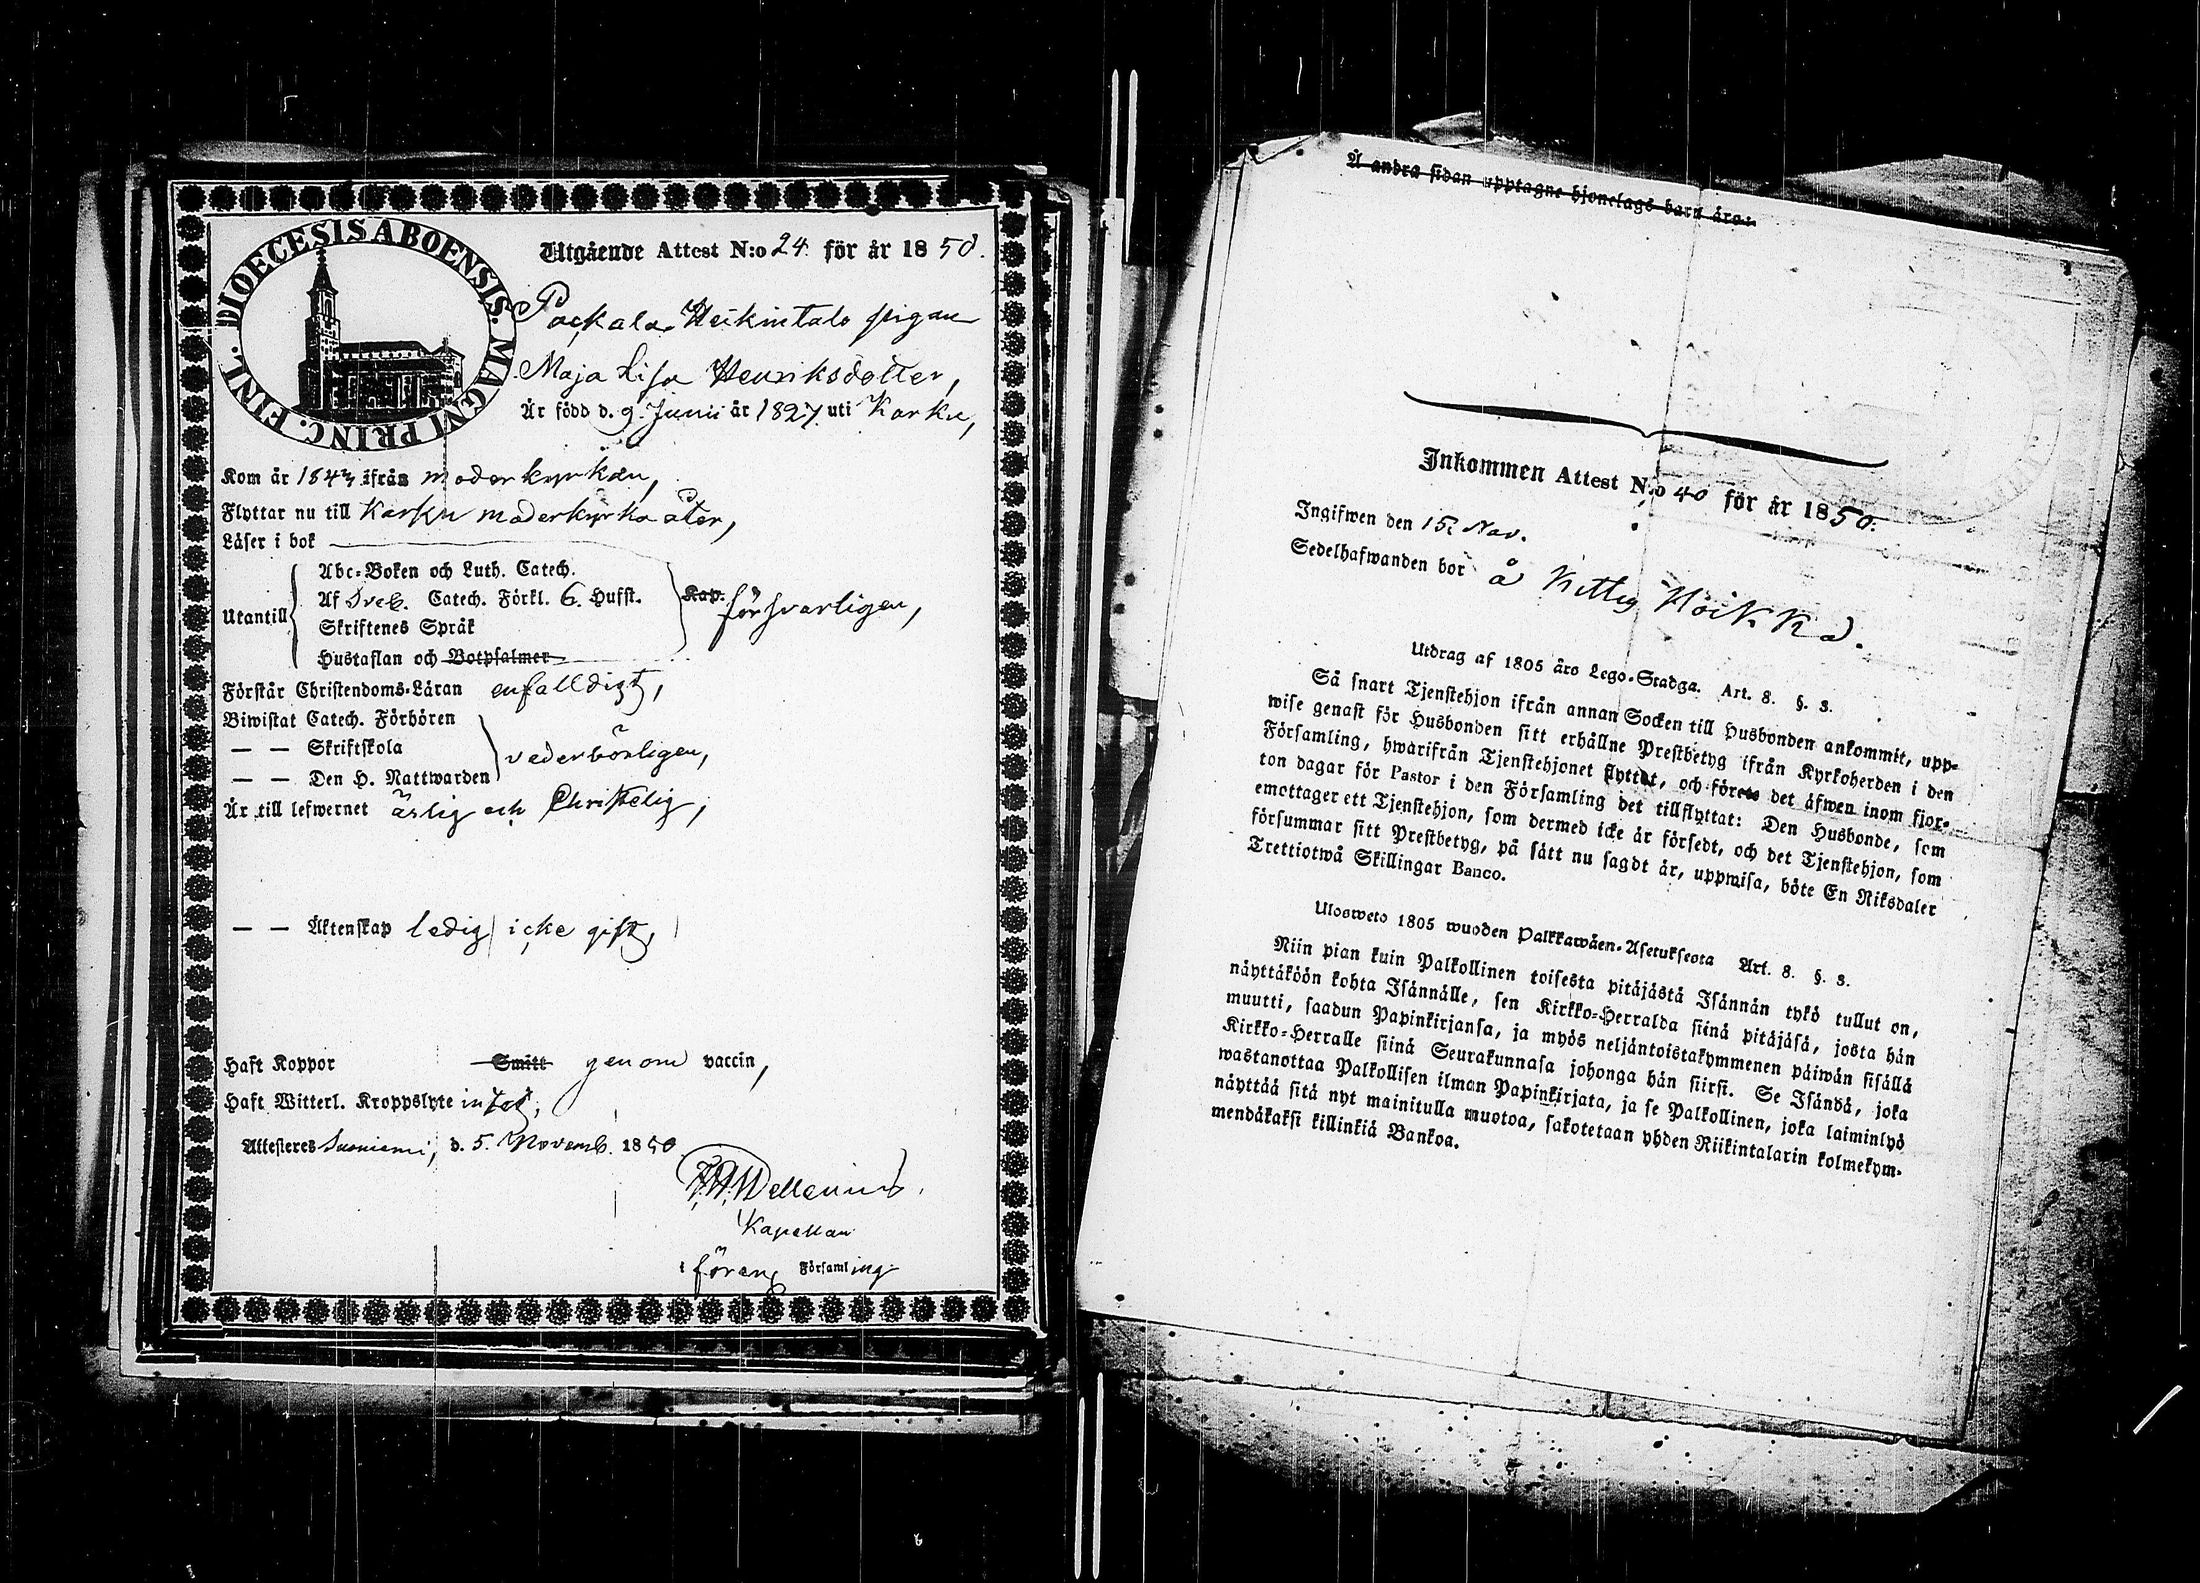 DIOECESIS ABOENSIS. MAGNI PRINC. FINL.
Utgående Attest N:o 24 för år 1850.
Heikintalo pigan
Maja Lisa Henriksdotter,
Är född d. 9 Junii år 1827 uti Karku,
Kom år 1843 ifrån moderkyrkan,
Flyttar nu till Karku moderkyrka åter,
Läser i bok
Utantill
Abc-Boken och Luth. Catech.
Af Sveb. Catech. Förkl. 6. Hufst.
Skriftenes Språk
Hustaflan och Botpsalmer
Kap. försvarligen,
Förstår Christendoms-Läran enfalldigt,
Biwistat Catech. Förhören
— — Skriftskola
— — Den H. Nattwarden
vederbörligen,
Är till lefwernet ärlig och Christelig,
— — Äktenskap ledig icke gift,
Haft Koppor Smitt genom vaccin,
Haft Witterl. Kroppslyte intet,
Attesteres Suoniemi, d. 5. Novemb. 1850
Wellenius,
Kapellan
i föreng Församl ing
Å andra sidan upptagne hjonelags barn äro:
Inkommen Attest N:o 40 för år 1850.
Ingifwen den 15 Nov.
Sedelhafwanden bor å
Utdrag af 1805 års Lego-Stadga. Art. 8. §. 3.
Så snart Tjenstehjon ifrån annan Socken till Husbonden ankommit, upp-
wise genast för Husbonden sitt erhållne Prestbetyg ifrån Kyrkoherden i den
Församling, hwarifrån Tjenstehjonet flyttat, och förete det äfwen inom fjor-
ton dagar för Pastor i den Församling det tillflyttat: Den Husbonde, som
emottager ett Tjenstehjon, som dermed icke är försedt, och det Tjenstehjon, som
försummar sitt Prestbetyg, på sätt nu sagdt är, uppwisa, böte En Riksdaler
Trettiotwå Skillingar Banco.
Ulosweto 1805 wuoden Palkkawäen-Asetuksesta Art. 8. §. 3.
Niin pian kuin Palkollinen toisesta pitäjästä Isännän tykö tullut on,
näyttäköön kohta Isännälle, sen Kirkko-Herralda siinä pitäjäsä, josta hän
muutti, saadun Papinkirjansa, ja myös neljäntoistakymmenen päiwän sisällä
Kirkko-Herralle siinä Seurakunnasa johonga hän siirsi. Se Isändä, joka
wastanottaa Palkollisen ilman Papinkirjata, ja se Palkollinen, joka laiminlyö
näyttää sitä nyt mainitulla muotoa, sakotetaan yhden Riikintalarin kolmekym-
mendäkaksi killinkiä Bankoa.